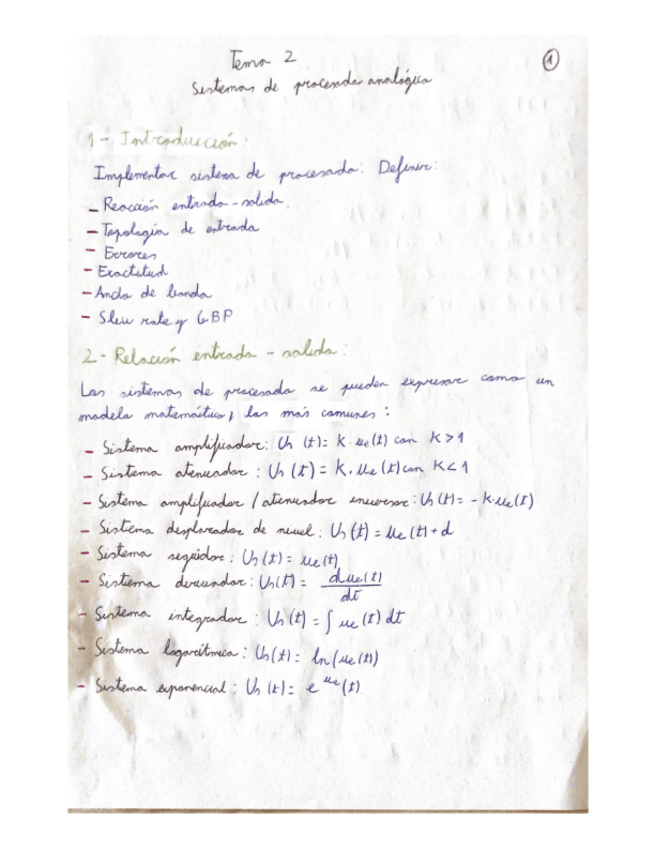 Tema 2
①
Sistemas de procesado analógico
1 - Introducción:
Implementar sistema de procesado: Definir:
- Reacción entrada - salida.
- Topología de entrada
- Errores
- Exactitud
- Ancho de banda
- Slew rate y GBP
2 - Relación entrada - salida:
Los sistemas de procesado se pueden expresar como un
modelo matemático, los más comunes:
- Sistema amplificador: Us (t) = K · ue(t) con K > 1
- Sistema atenuador : Us (t) = K · ue (t) con K < 1
- Sistema amplificador / atenuador inversor: Us (t) = - K · ue(t)
- Sistema desplazador de nivel : Us (t) = ue (t) + d
- Sistema seguidor : Us (t) = ue(t)
- Sistema derivador: Us(t) = due(t)/dt
- Sistema integrador : Us (t) = ∫ ue (t) dt
- Sistema logarítmica : Us(t) = ln (ue (t))
- Sistema exponencial : Us (t) = e^ue (t)